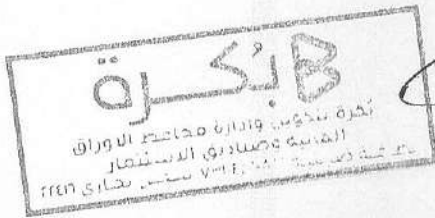 بُكرة B
بُكرة لتكوين وإدارة محافظ الأوراق
المالية وصناديق الاستثمار
سجل تجاري